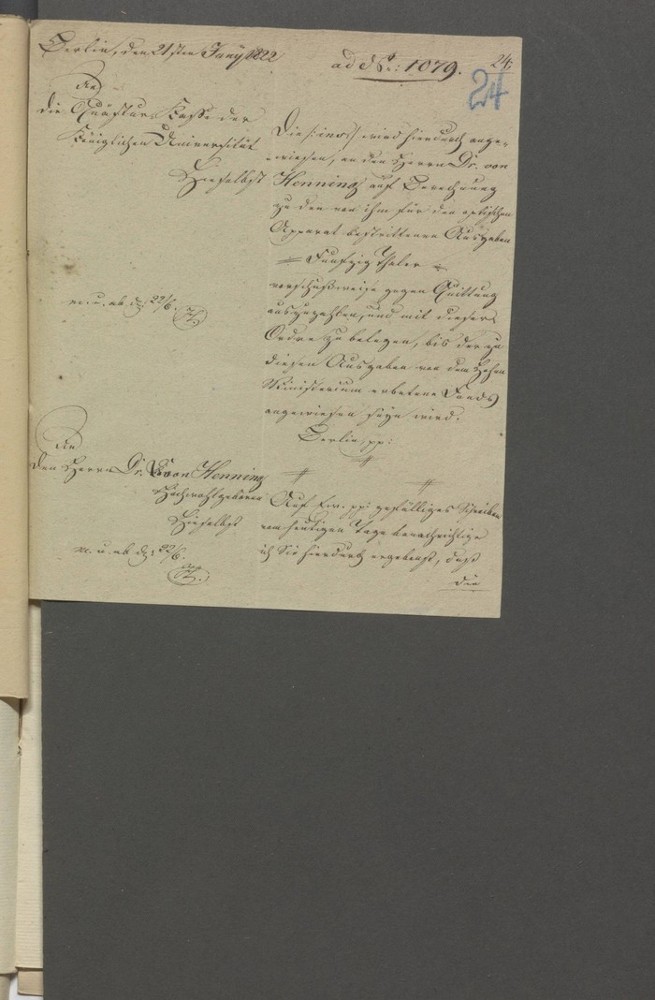 Berlin, den 21sten Juny 1822
ad No: 1079.
24.
24
An
die Quästur-Kasse der
Königlichen Universität
Hieselbst
Die (: inss :) wird hierdurch ange-
wiesen, an den Herrn Dr. von
Henning auf Berechnung
zu den von ihm für den optischen
Apparat bestrittenen Ausgaben
= Funfzig Thaler =
vorschußweise gegen Quittung
auszuzahlen, und mit dieser
Ordre zu belegen, bis der zu
diesen Ausgaben von dem Hohen
Ministerium erbetene Fonds
angewiesen seyn wird.
Berlin, pp:
m. u. ab d. 22/6.
An
den Herrn Dr. von Henning
Hochwohlgeboren
Hieselbst
m. u. ab d. 22/6.
Auf Ew. pp: gefälliges Schreiben
vom heutigen Tage benachrichtige
ich Sie hierdurch ergebenst, daß
die